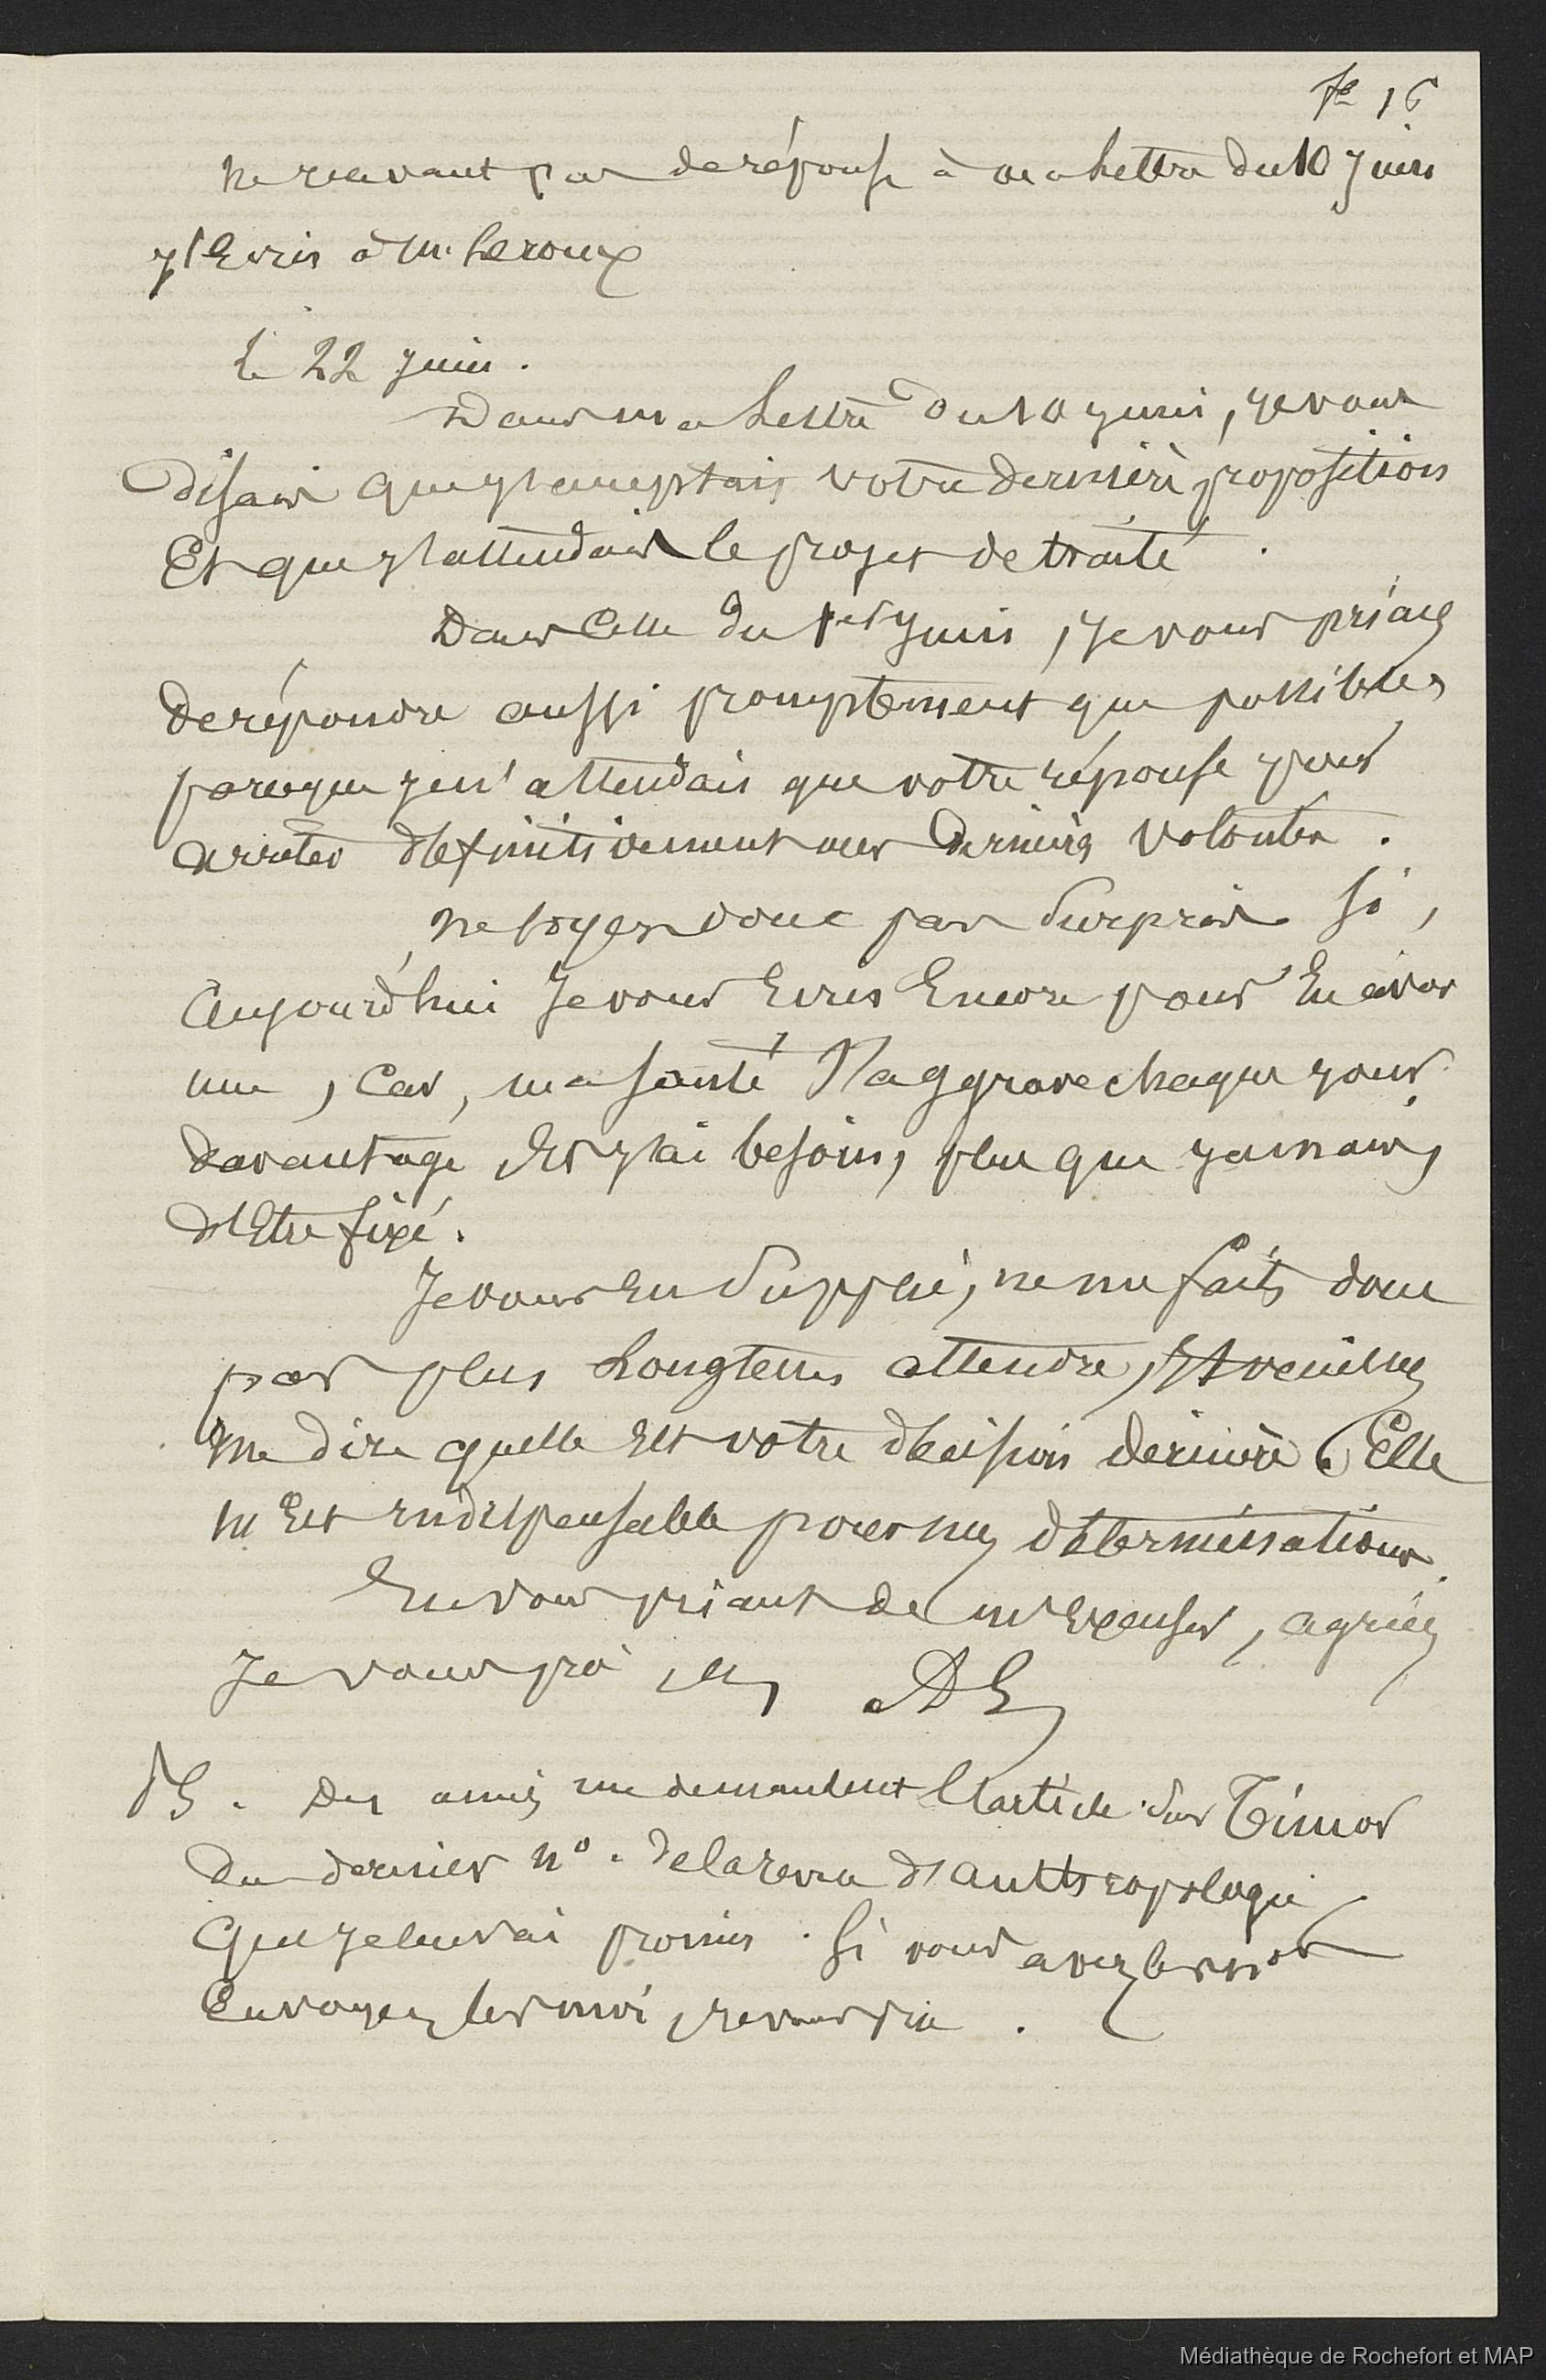 fo 16
ne recevant pas de réponse à ma lettre du 10 juin
j'Ecris à Mr. Leroux
Le 22 juin.
Dans ma Lettre du 10 juin, je vous
disais que j'acceptais votre dernière proposition
Et que j'attendais le projet de traité.
Dans celle du 1er juin, je vous priais
de répondre aussi promptement que possible,
parceque je n'attendais que votre réponse pour
arrêter définitivement mes dernières volontés.
Ne soyez donc pas surpris si,
Aujourd'hui Je vous Ecris Encore pour En avoir
une, Car, ma santé s'aggrave chaque jour
davantage Et j'ai besoin, plus que jamais,
d'Etre fixé.
Je vous En supplie, ne me faites donc
pas plus Longtems attendre, Et veuillez
me dire quelle Est votre décision dernière. Elle
m'Est indispensable pour mes déterminations.
En vous priant de m'Excuser, agréez
Je vous prie, etc, AL
PS. Des amis me demandent l'article sur Timor
du dernier no. de la revue d'anthropologie
que je leur ai promis. Si vous avez les nos
Envoyez les moi, je vous prie.
Médiathèque de Rochefort et MAP